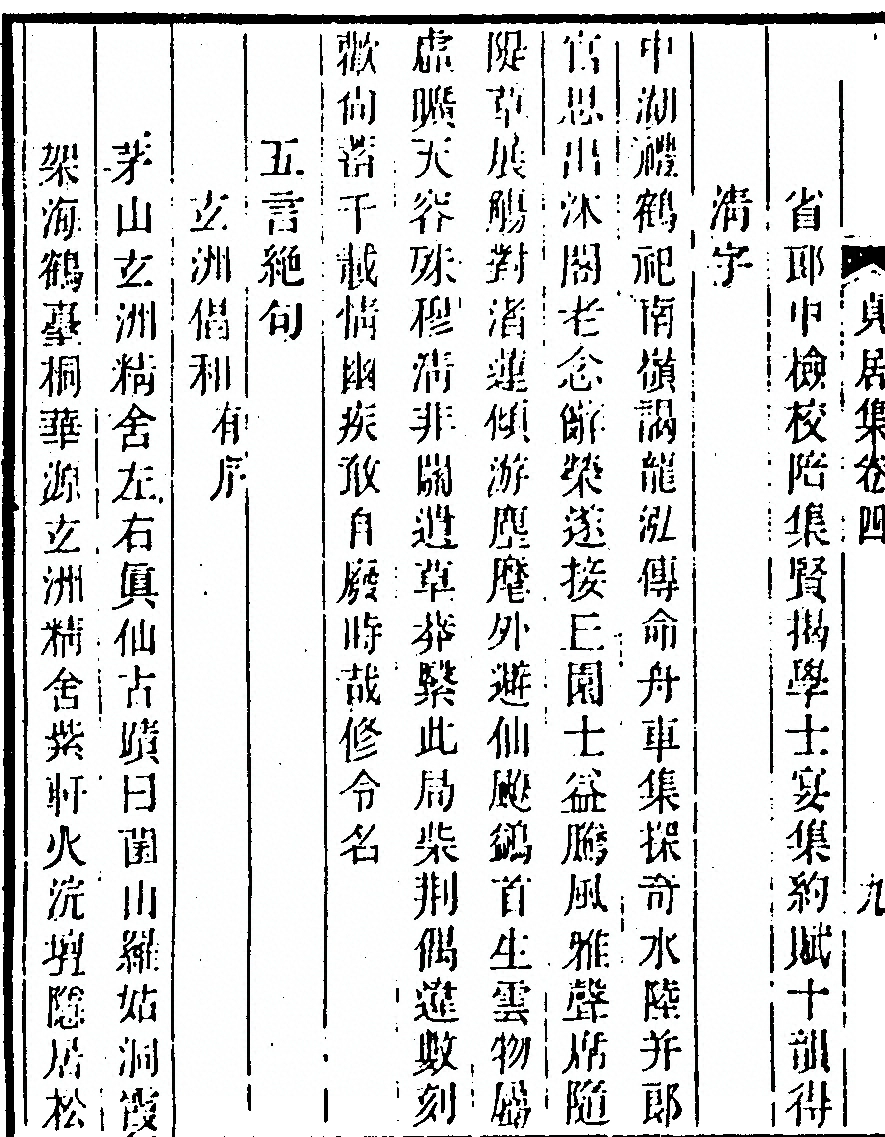 貞居集卷四 九
省郎中檢校陪集賢揭學士宴集約賦十韻得
清字
中湖禮鶴祀南嶺謁龍泓傳命舟車集探奇水陸并郎
官思出沐閣老念辭榮遂接丘園士益騰風雅聲席隨
隄草展觴對渚蓮傾游塵麾外避仙颷鷁首生雲物屬
虛曠天容殊穆清非關遺草莽繄此局柴荆偶莚數刻
歡尙蓄千載情幽疾敢自廢時哉修令名
五言絶句
玄洲倡和有序
茅山玄洲精舍左右眞仙古蹟曰菌山羅姑洞霞
架海鶴臺桐華源玄洲精舍紫軒火浣壇隱居松